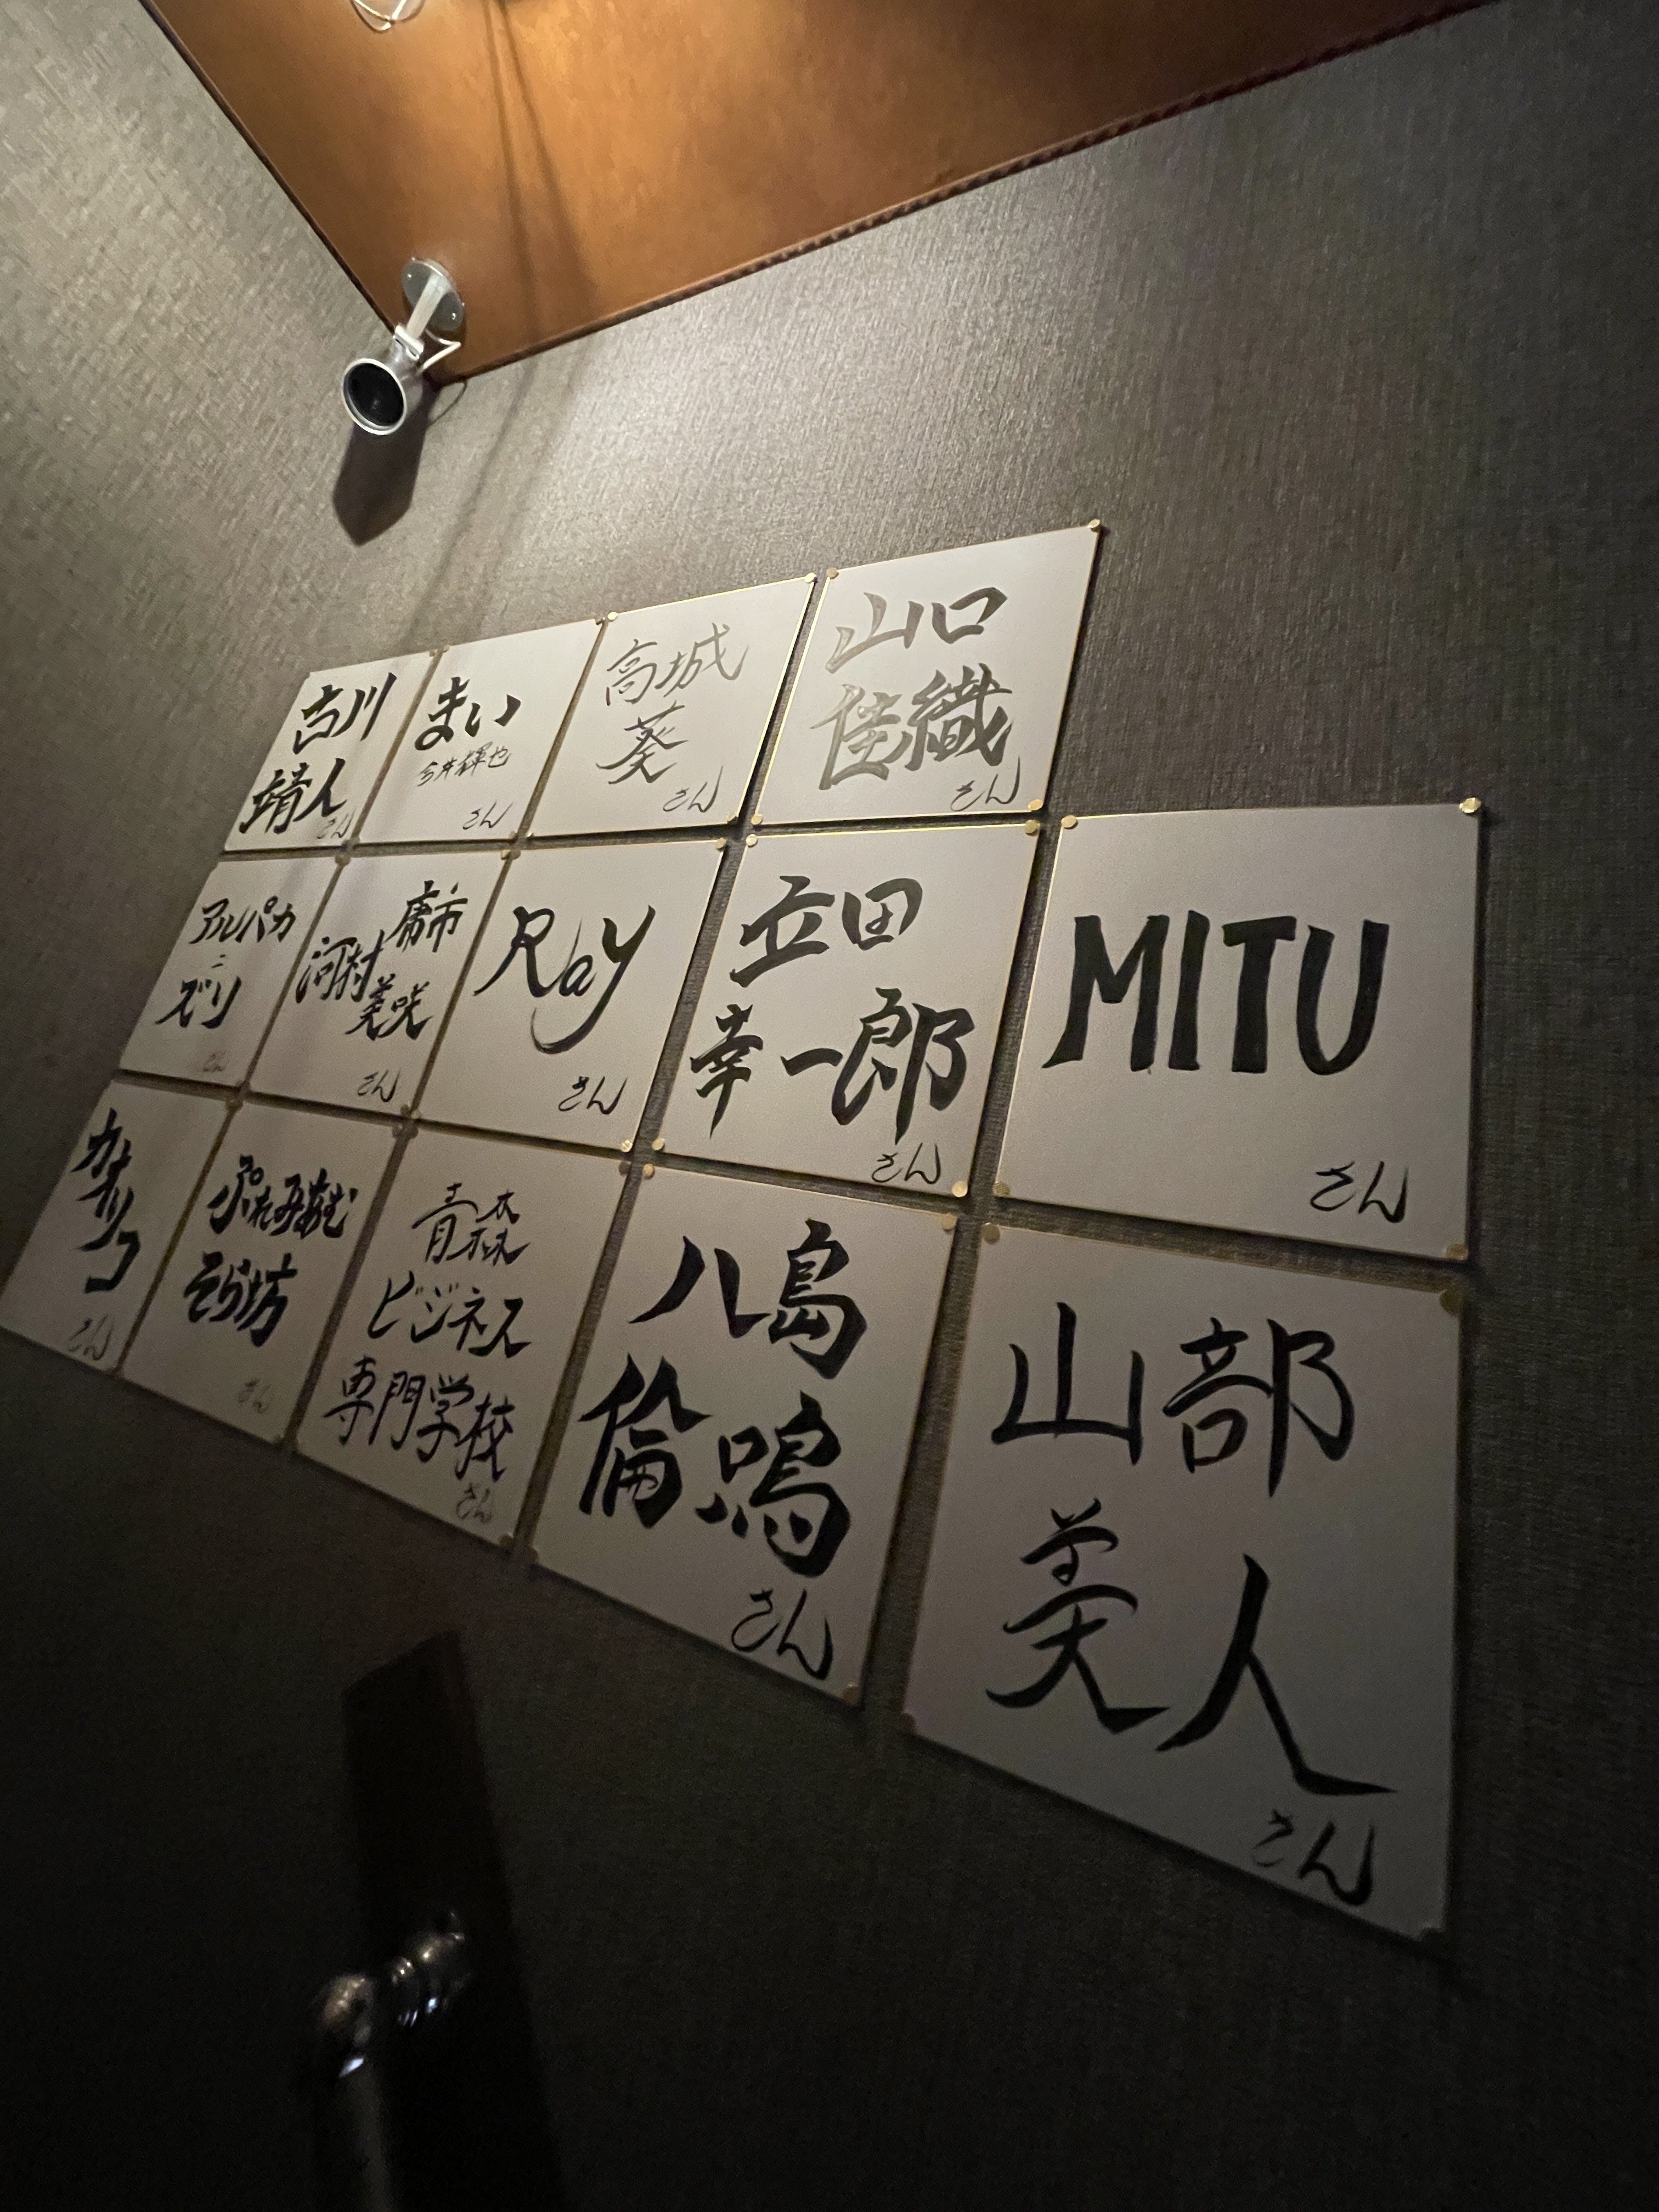 吉川
靖人
さん
まい
今井輝也
さん
高城
葵
さん
山口
佳織
さん
アルパカ
ニ
ズリ
さん
席市
河村
美咲
さん
Ray
さん
立田
幸一郎
さん
MITU
さん
カナリコ
さん
ぷれみあむ
そら坊
さん
青森
ビジネス
専門学校
さん
八島
倫鳴
さん
山部
美人
さん